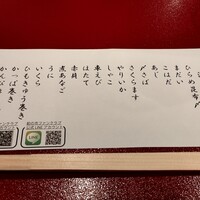 ひらめ昆布〆
まだい
こはだ
あじ
〆さば
さくらます
やりいか
しゃこ
車えび
ほたて
赤貝
煮あなご
うに
いくら
ひもきゅう巻き
かっぱ巻き
かんぴょ